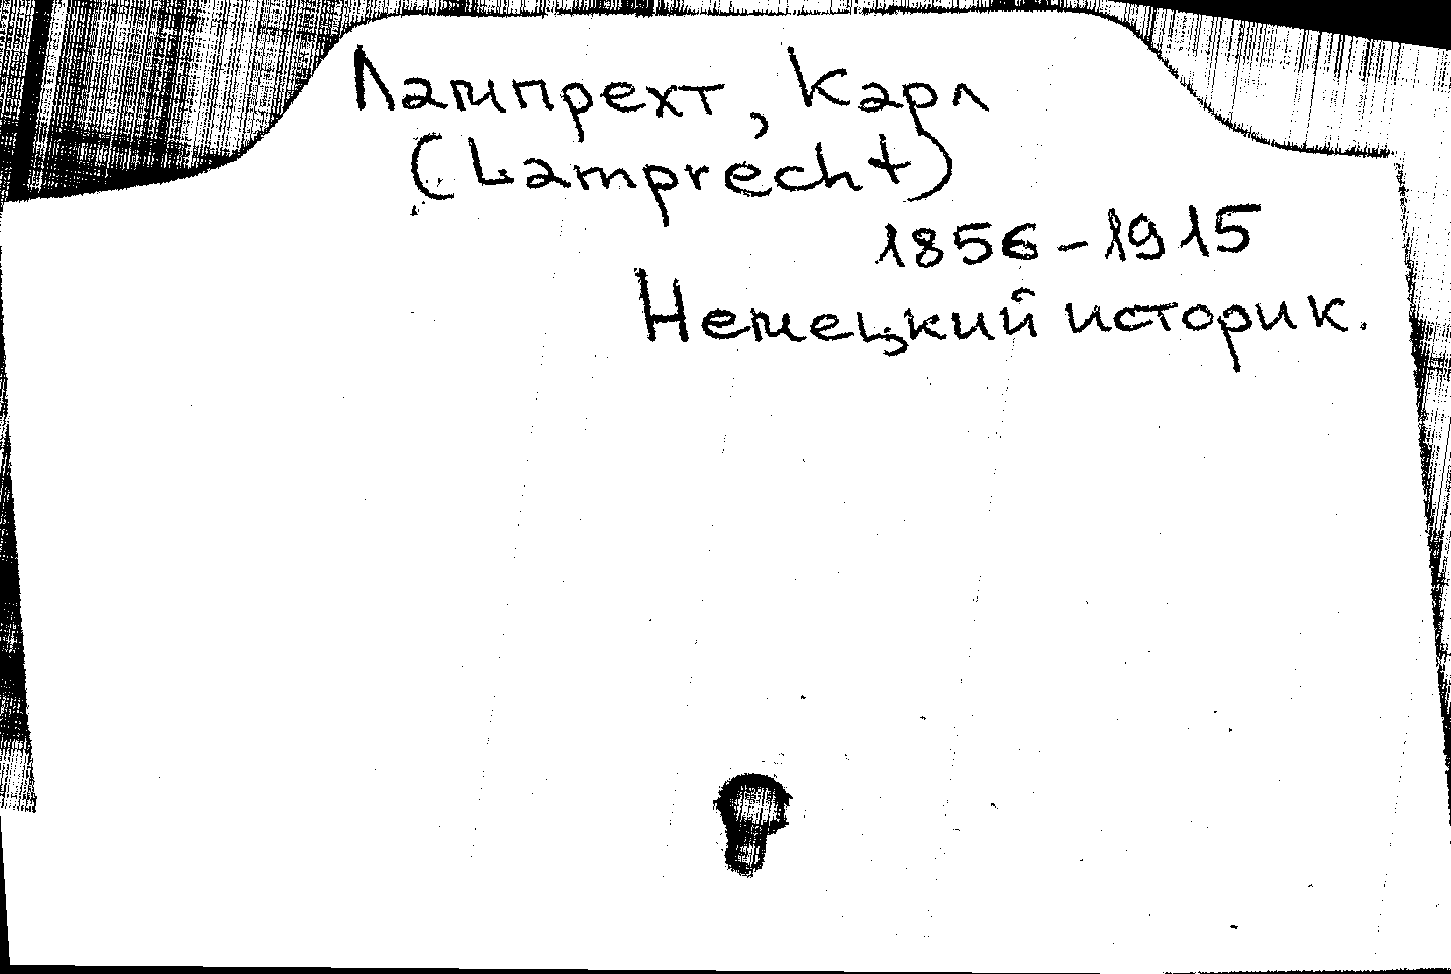 Лампрехт, Карл
(Lamprecht)
1856-1915
Немецкий историк.